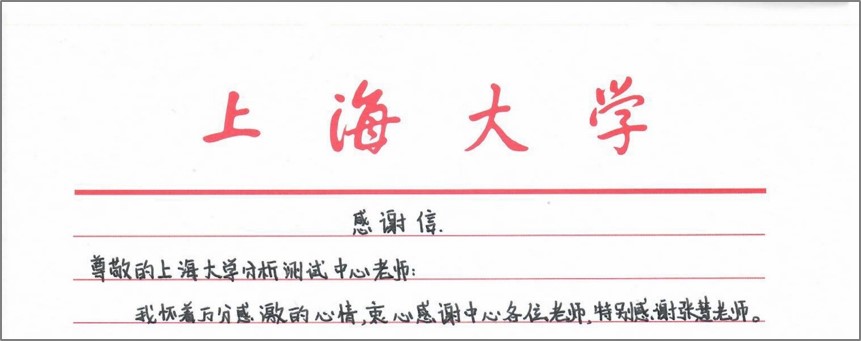 上海大学
感谢信.
尊敬的上海大学分析测试中心老师:
我怀着万分感激的心情,衷心感谢中心各位老师,特别感谢张慧老师。